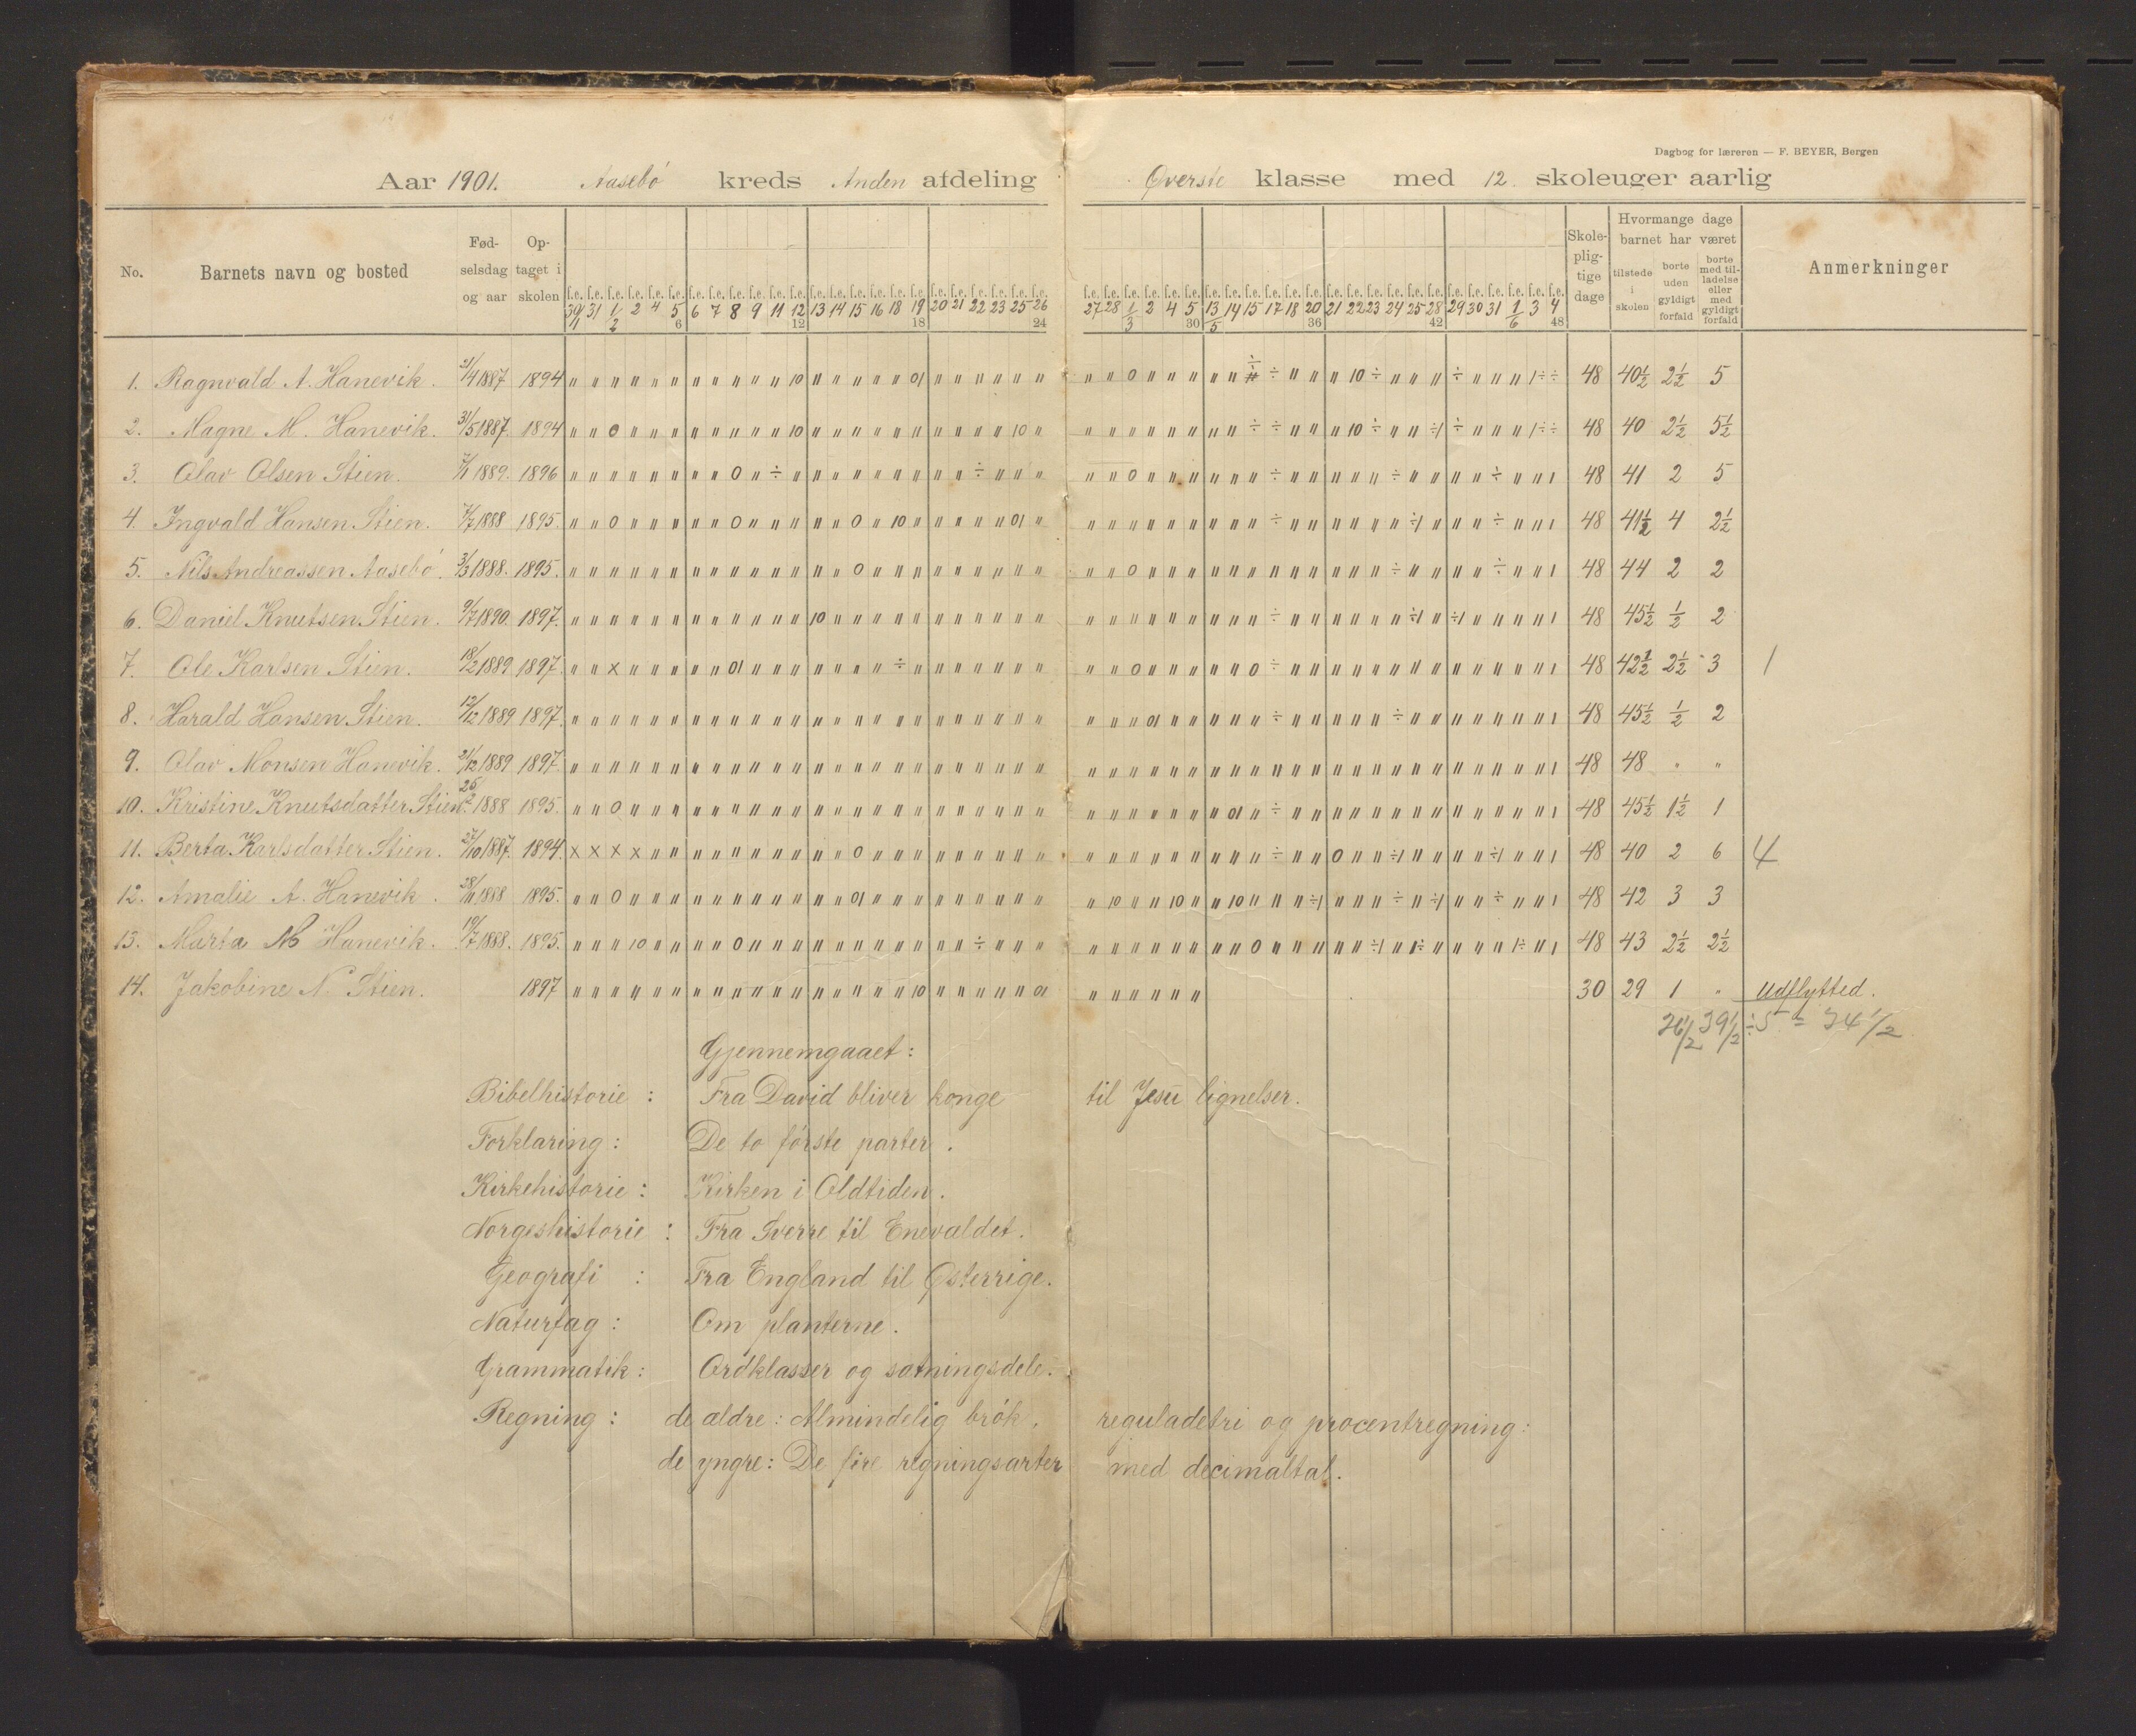 Dagbog for læreren — F. BEYER, Bergen
Aar 1901. Aasebó kreds Anden afdeling Øverste klasse med 12 skoleuger aarlig
No. Barnets navn og bosted Fødselsdag og aar Optaget i skolen Skolepligtige dage Hvormange dage barnet har været tilstede i skolen borte uden gyldigt forfald borte med tilladelse eller med gyldigt forfald Anmerkninger
f.e. f.e. f.e. f.e. f.e. f.e. f.e. f.e. f.e. f.e. f.e. f.e. f.e. f.e. f.e. f.e. f.e. f.e. f.e. f.e. f.e. f.e. f.e. f.e. f.e. f.e. f.e. f.e. f.e. f.e. f.e. f.e. f.e. f.e. f.e. f.e. f.e. f.e. f.e. f.e. f.e. f.e. f.e. f.e. f.e. f.e. f.e.
30/1 31 1/2 2 4 5 6 7 8 9 11 12 13 14 15 16 18 19 20 21 22 23 25 26 27 28 1/3 2 4 5 13/5 14 15 17 18 20 21 22 23 24 25 28 29 30 31 1/6 3 4
6 12 18 24 30 36 42 48
1. Ragnvald A. Hanevik. 21/4 1887 1894 48 40½ 2½ 5
2. Magne M. Hanevik. 31/5 1887. 1894 48 40 2½ 5½
3. Olav Olsen Stien. 1889. 1896 48 41 2 5
4. Ingvald Hansen Stien. 7/7 1888 1895. 48 41½ 4 2½
5. Nils Andreassen Aasebó. 3/3 1888. 1895. 48 44 2 2
6. Daniel Knutsen Stien. 9/7 1890. 1897. 48 45½ ½ 2
7. Ole Karlsen Stien. 18/2 1889 1897. 48 42½ 2½ 3 1
8. Harald Hansen Stien. 12/12 1889 1897. 48 45½ ½ 2
9. Olav Monsen Hanevik. 21/12 1889 1897. 48 48 " "
10. Kristine Knutsdatter Stien. 25/2 1888 1895. 48 45½ 1½ 1
11. Berta Karlsdatter Stien. 27/10 1887. 1894 48 40 2 6 4
12. Amalie A. Hanevik. 28/11 1888 1895. 48 42 3 3
13. Marta M Hanevik. 19/7 1888. 1895. 48 43 2½ 2½
14. Jakobine N. Stien. 1897 30 29 1 " Udflytted.
26½ 39½ ÷ 5 = 34½
Gjennemgaaet:
Bibelhistorie: Fra David bliver konge til Jesu lignelser.
Forklaring: De to første parter.
Kirkehistorie: Kirken i Oldtiden.
Norgeshistorie: Fra Sverre til Enevældet.
Geografi: Fra England til Østerrige.
Naturfag: Om planterne.
Grammatik: Ordklasser og sætningsdele.
Regning: de ældre: Almindelig brók, reguladetri og procentregning:
de yngre: De fire regningsarter med decimaltal.